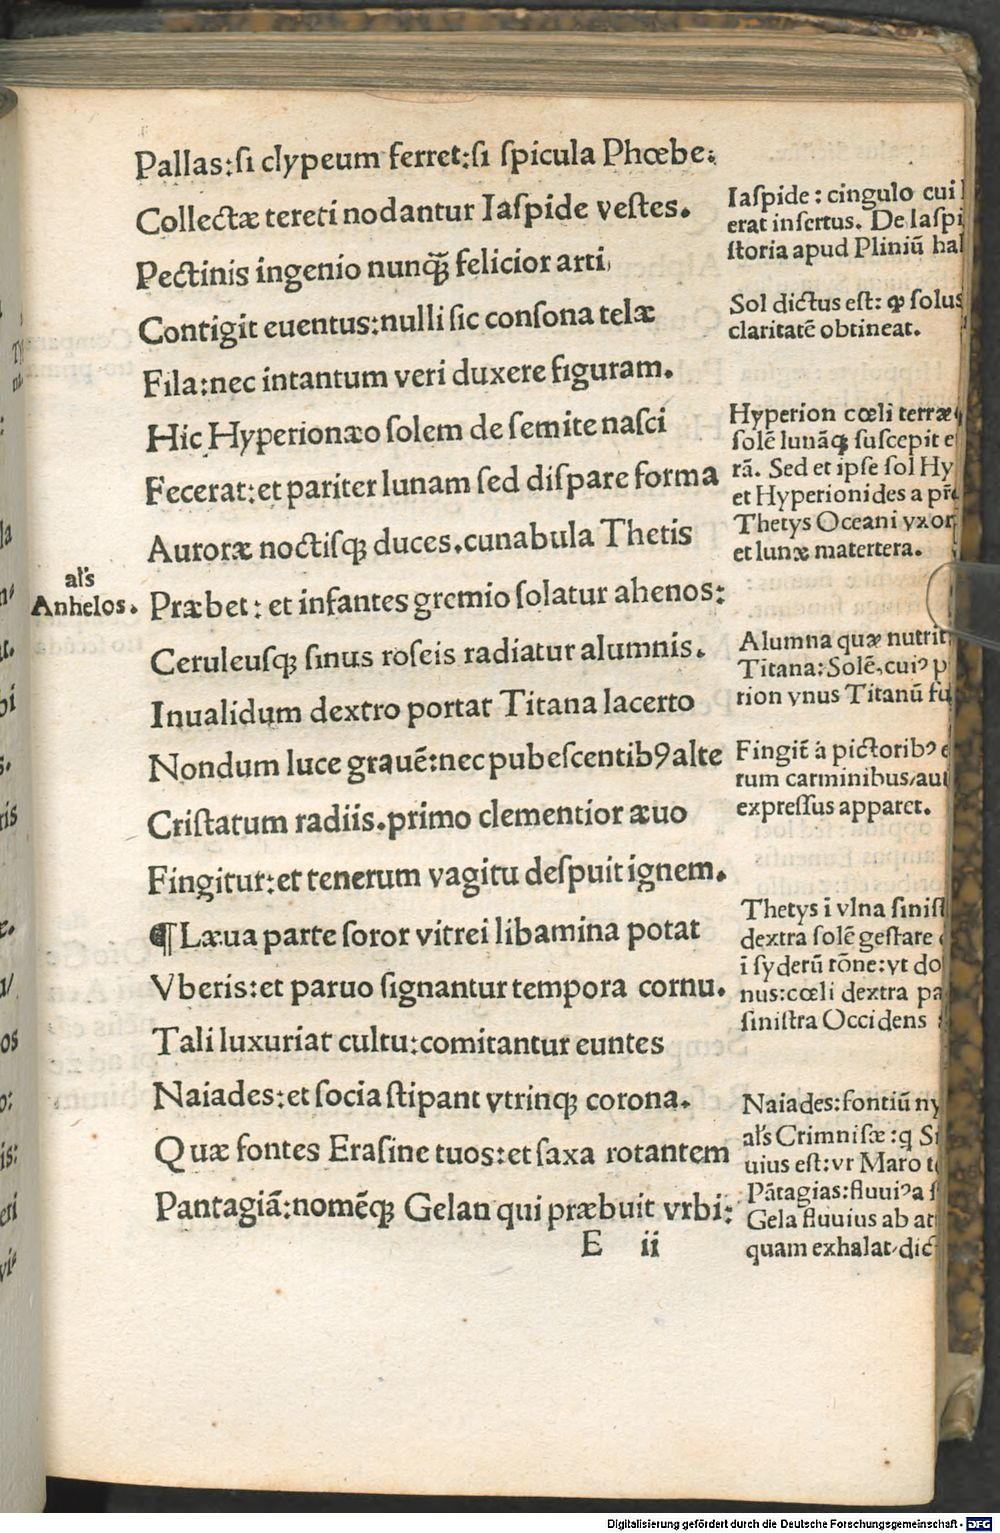 Pallas:si clypeum ferret:si spicula Phœbe.
Collectæ tereti nodantur Iaspide vestes.
Pectinis ingenio nunq̃ felicior arti
Contigit euentus:nulli sic consona telæ
Fila:nec intantum veri duxere figuram.
Hic Hyperionæo solem de semite nasci
Fecerat:et pariter lunam sed dispare forma
Auroræ noctisq; duces.cunabula Thetis
Præbet: et infantes gremio solatur ahenos:
Ceruleusq; sinus roseis radiatur alumnis.
Inualidum dextro portat Titana lacerto
Nondum luce grauē:nec pubescentibꝰ alte
Cristatum radiis.primo clementior æuo
Fingitur:et tenerum vagitu despuit ignem.
¶ Læua parte soror vitrei libamina potat
Vberis:et paruo signantur tempora cornu.
Tali luxuriat cultu:comitantur euntes
Naiades:et socia stipant vtrinq; corona.
Quæ fontes Erasine tuos:et saxa rotantem
Pantagiā:nomēq; Gelan qui præbuit vrbi:
E ii
al's
Anhelos.
Iaspide: cingulo cui
erat insertus. De Iaspi
storia apud Pliniū
Sol dictus est: ꝙ solus
claritatē obtineat.
Hyperion cœli terræ
solē lunāq; suscepit
rā. Sed et ipse sol Hy
et Hyperionides a
Thetys Oceani vxor
et lunæ matertera.
Alumna quæ nutrit
Titana: Solē,cuiꝰ p
rion vnus Titanū fu
Fingit̃ à pictoribꝰ
rum carminibus/aut
expressus apparet.
Thetys ī vlna sinist
dextra solē gestare
ī syderū rōne:vt do
nus:cœli dextra pa
sinistra Occidens
Naiades:fontiū ny
al's Crimnisæ:q Si
uius est:vr Maro
Pātagias:fluuiꝰ a
Gela fluuius ab
quam exhalat/dic
Digitalisierung gefördert durch die Deutsche Forschungsgemeinschaft - DFG